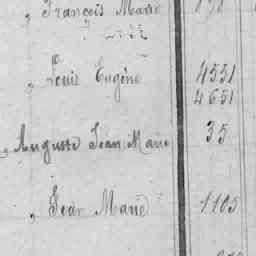 „ François Marie
„ Louis Eugène 4551
4651
„ Auguste Jean Marie 35
„ Jean Marie 1105